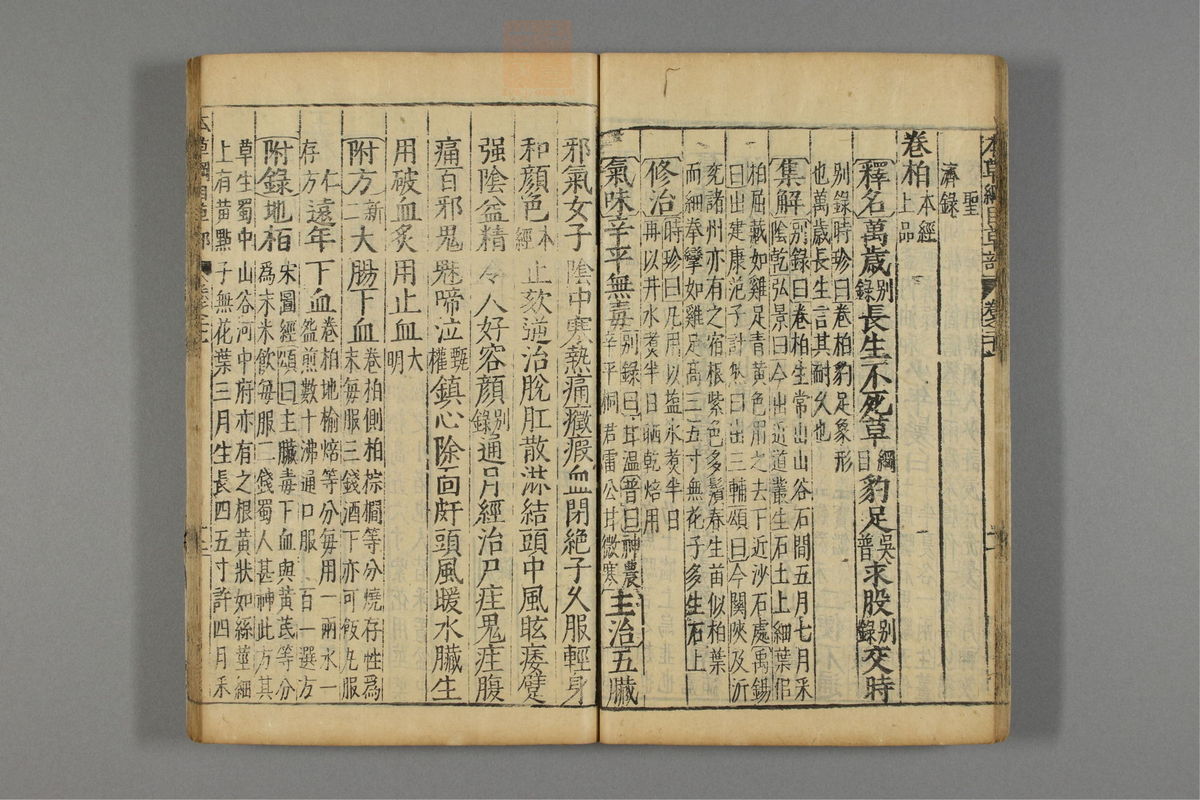 聖
濟錄
卷柏本經上品
釋名萬歲別錄長生不死草綱目豹足吳普求股別錄交時
別錄時珍曰卷柏豹足象形
也萬歲長生言其耐久也
集解別錄曰卷柏生常山山谷石間五月七月采
陰乾弘景曰今出近道叢生石土上細葉佀
柏屈蔵如雞足青黃色用之去下近沙石處禹錫
曰出建康范子計然曰出三輔頌曰今關陝及沂
兖諸州亦有之宿根紫色多鬚春生苗似柏葉
而細拳攣如雞足高三五寸無花子多生石上
修治時珍曰凡用以盐水煑半日
再以井水煑半日晒乾焙用
氣味辛平無毒別錄曰甘温普曰神農辛平桐君雷公甘微寒主治五臟
邪氣女子陰中寒熱痛癥瘕血閉絶子久服輕身
和顏色本經止欬逆治脫肛散淋結頭中風眩痿躄
强陰益精令人好容顏別錄通月經治尸疰鬼疰腹
痛百邪鬼魅啼泣甄權鎮心除面皯頭風暖水臟生
用破血炙用止血大明
附方新二大腸下血卷柏側柏棕櫚等分燒存性爲
末每服三錢酒下亦可飯丸服
仁存方遠年下血卷柏地榆焙等分每用一兩水一
盌煎數十沸通口服百一選方
附錄地柏宋圖經頌曰主臟毒下血與黃芪等分
爲末米飲每服二錢蜀人甚神此方其
草生蜀中山谷河中府亦有之根黃狀如絲莖細
上有黃點子無花葉三月生長四五寸許四月采